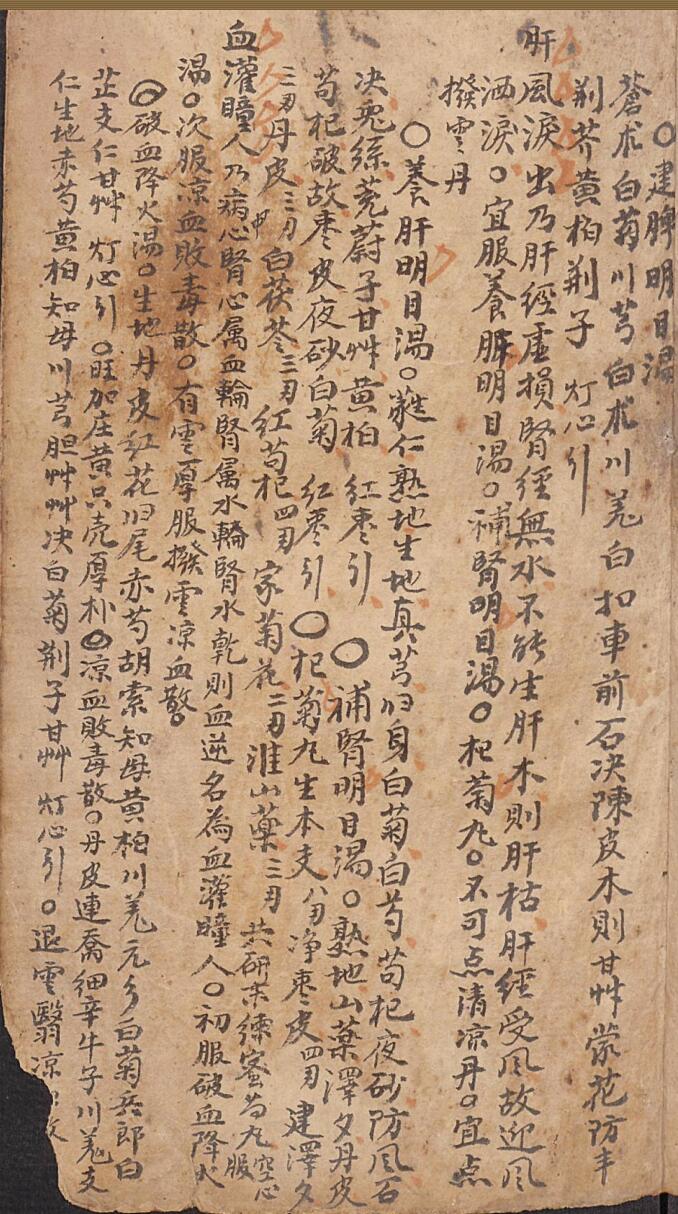 ○建脾明目湯
蒼朮白菊川芎白朮川羌白扣車前石决陳皮木則甘艸蒙花防丰
荆芥黄柏荆子 灯心引
肝風淚出乃肝經虛損腎經無水不能生肝木則肝枯肝經受風故迎風
洒淚○宜服養脾明目湯○補腎明目湯○杞菊九○不可点清凉丹○宜点
撥雲丹
○養肝明目湯○蕤仁熟地生地真芎归身白菊白芍苟杞夜砂防風石
决兎絲茺蔚子甘艸黄柏 紅枣引 ○補腎明目湯○熟地山藥澤夕丹皮
苟杞破故枣皮夜砂白菊 紅枣引○杞菊九生本支八刄净枣皮四刄建澤夕
三刄丹皮三刄白茯苓三刄紅苟杞四刄家菊花二刄淮山藥三刄 共研末練蜜為九空心服
血灌瞳人乃病心腎心属血輪腎属水輪腎水乾則血逆名為血灌瞳人○初服破血降火
湯○次服凉血敗毒散○有雲厚服撥雲凉血散
○破血降火湯○生地丹皮紅花归尾赤芍胡索知母黄柏川羌元夕白菊兵郎白
芷支仁甘艸 灯心引○旺加庄黄只壳厚朴○凉血敗毒散○丹皮連喬細辛牛子川羌支
仁生地赤芍黄柏知母川芎胆艸艸决白菊荆子甘艸 灯心引○退雲翳凉